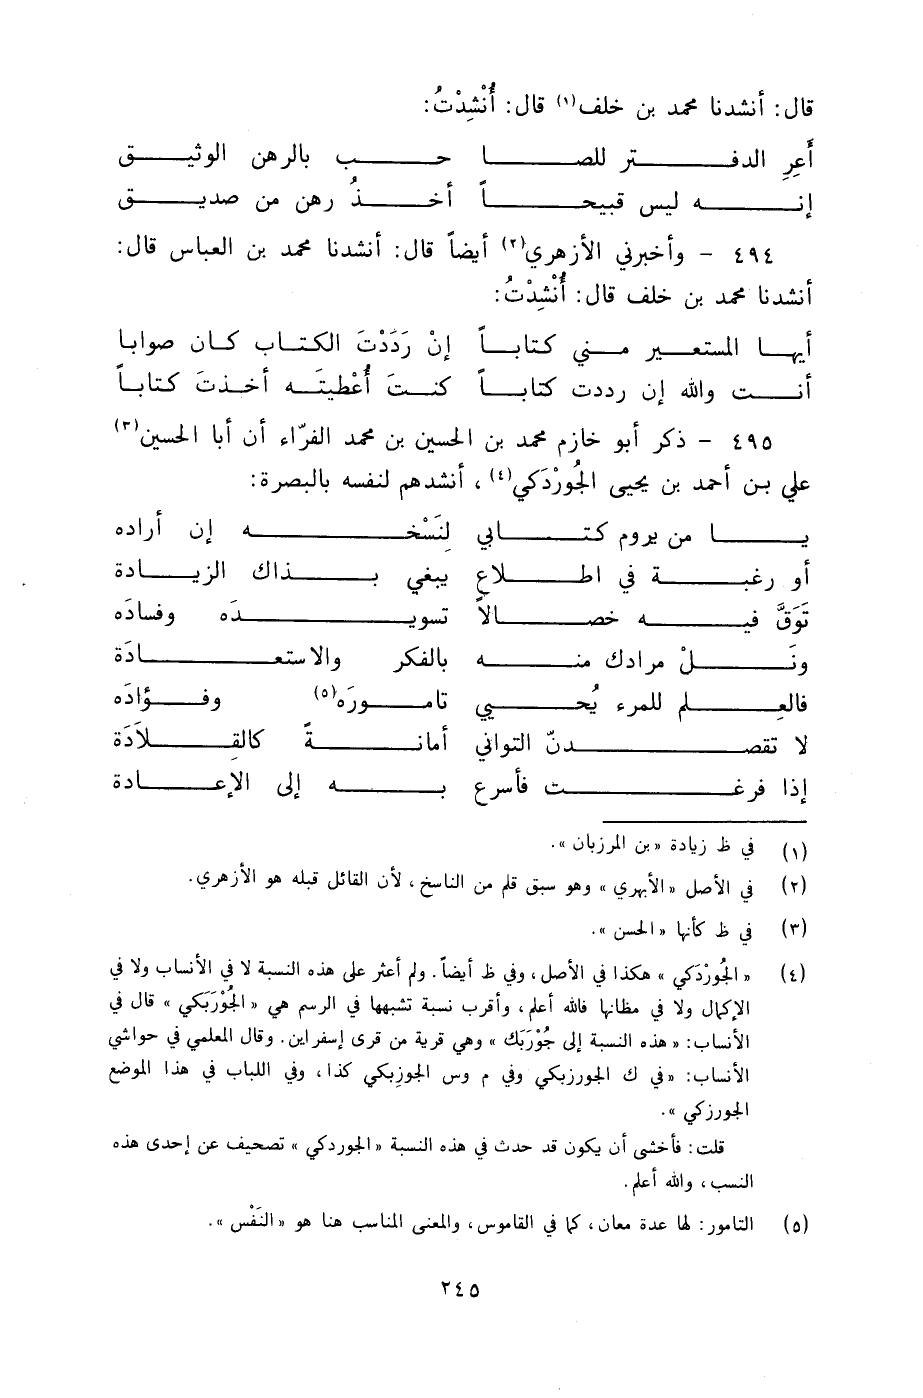 قال: أنشدنا محمد بن خلف(١) قال: أُنْشِدْتُ:
أَعِرِ الدفتر للصاحب بالرهن الوثيق
إنه ليس قبيحاً أخذُ رهن من صديق
٤٩٤ - وأخبرني الأزهري(٢) أيضاً قال: أنشدنا محمد بن العباس قال:
أنشدنا محمد بن خلف قال: أُنْشِدْتُ:
أيها المستعير مني كتاباً إنْ رَدَدْتَ الكتاب كان صوابا
أنت والله إن رددت كتاباً كنتَ أُعْطيتَه أخذتَ كتاباً
٤٩٥ - ذكر أبو خازم محمد بن الحسين بن محمد الفرّاء أن أبا الحسين(٣)
علي بن أحمد بن يحيى الجُورْدَكي(٤)، أنشدهم لنفسه بالبصرة:
يا من يروم كتابي لِنَسْخه إن أراده
أو رغبة في اطلاعٍ يبغي بذاك الزيادة
تَوَقَّ فيه خصالاً تسويدَه وفسادَه
ونَلْ مرادك منه بالفكر والاستعادَة
فالعِلم للمرء يُحيي تامورَه(٥) وفؤادَه
لا تقصدنّ التواني أمانةً كالقِلادَة
إذا فرغت فأسرع به إلى الإعادة
(١) في ظ زيادة «بن المرزبان».
(٢) في الأصل «الأبهري» وهو سبق قلم من الناسخ، لأن القائل قبله هو الأزهري.
(٣) في ظ كأنها «الحسن».
(٤) «الجُورْدَكي» هكذا في الأصل، وفي ظ أيضاً. ولم أعثر على هذه النسبة لا في الأنساب ولا في
الإكمال ولا في مظانها فالله أعلم، وأقرب نسبة تشبهها في الرسم هي «الجُوْرَبَكي» قال في
الأنساب: «هذه النسبة إلى جُوْرَبَك» وهي قرية من قرى إسفراين. وقال المعلمي في حواشي
الأنساب: «في ك الجورزبكي وفي م وس الجوزبكي كذا، وفي اللباب في هذا الموضع
الجورزكي».
قلت: فأخشى أن يكون قد حدث في هذه النسبة «الجوردكي» تصحيف عن إحدى هذه
النسب، والله أعلم.
(٥) التامور: لها عدة معان، كما في القاموس، والمعنى المناسب هنا هو «النَفْس».
٢٤٥